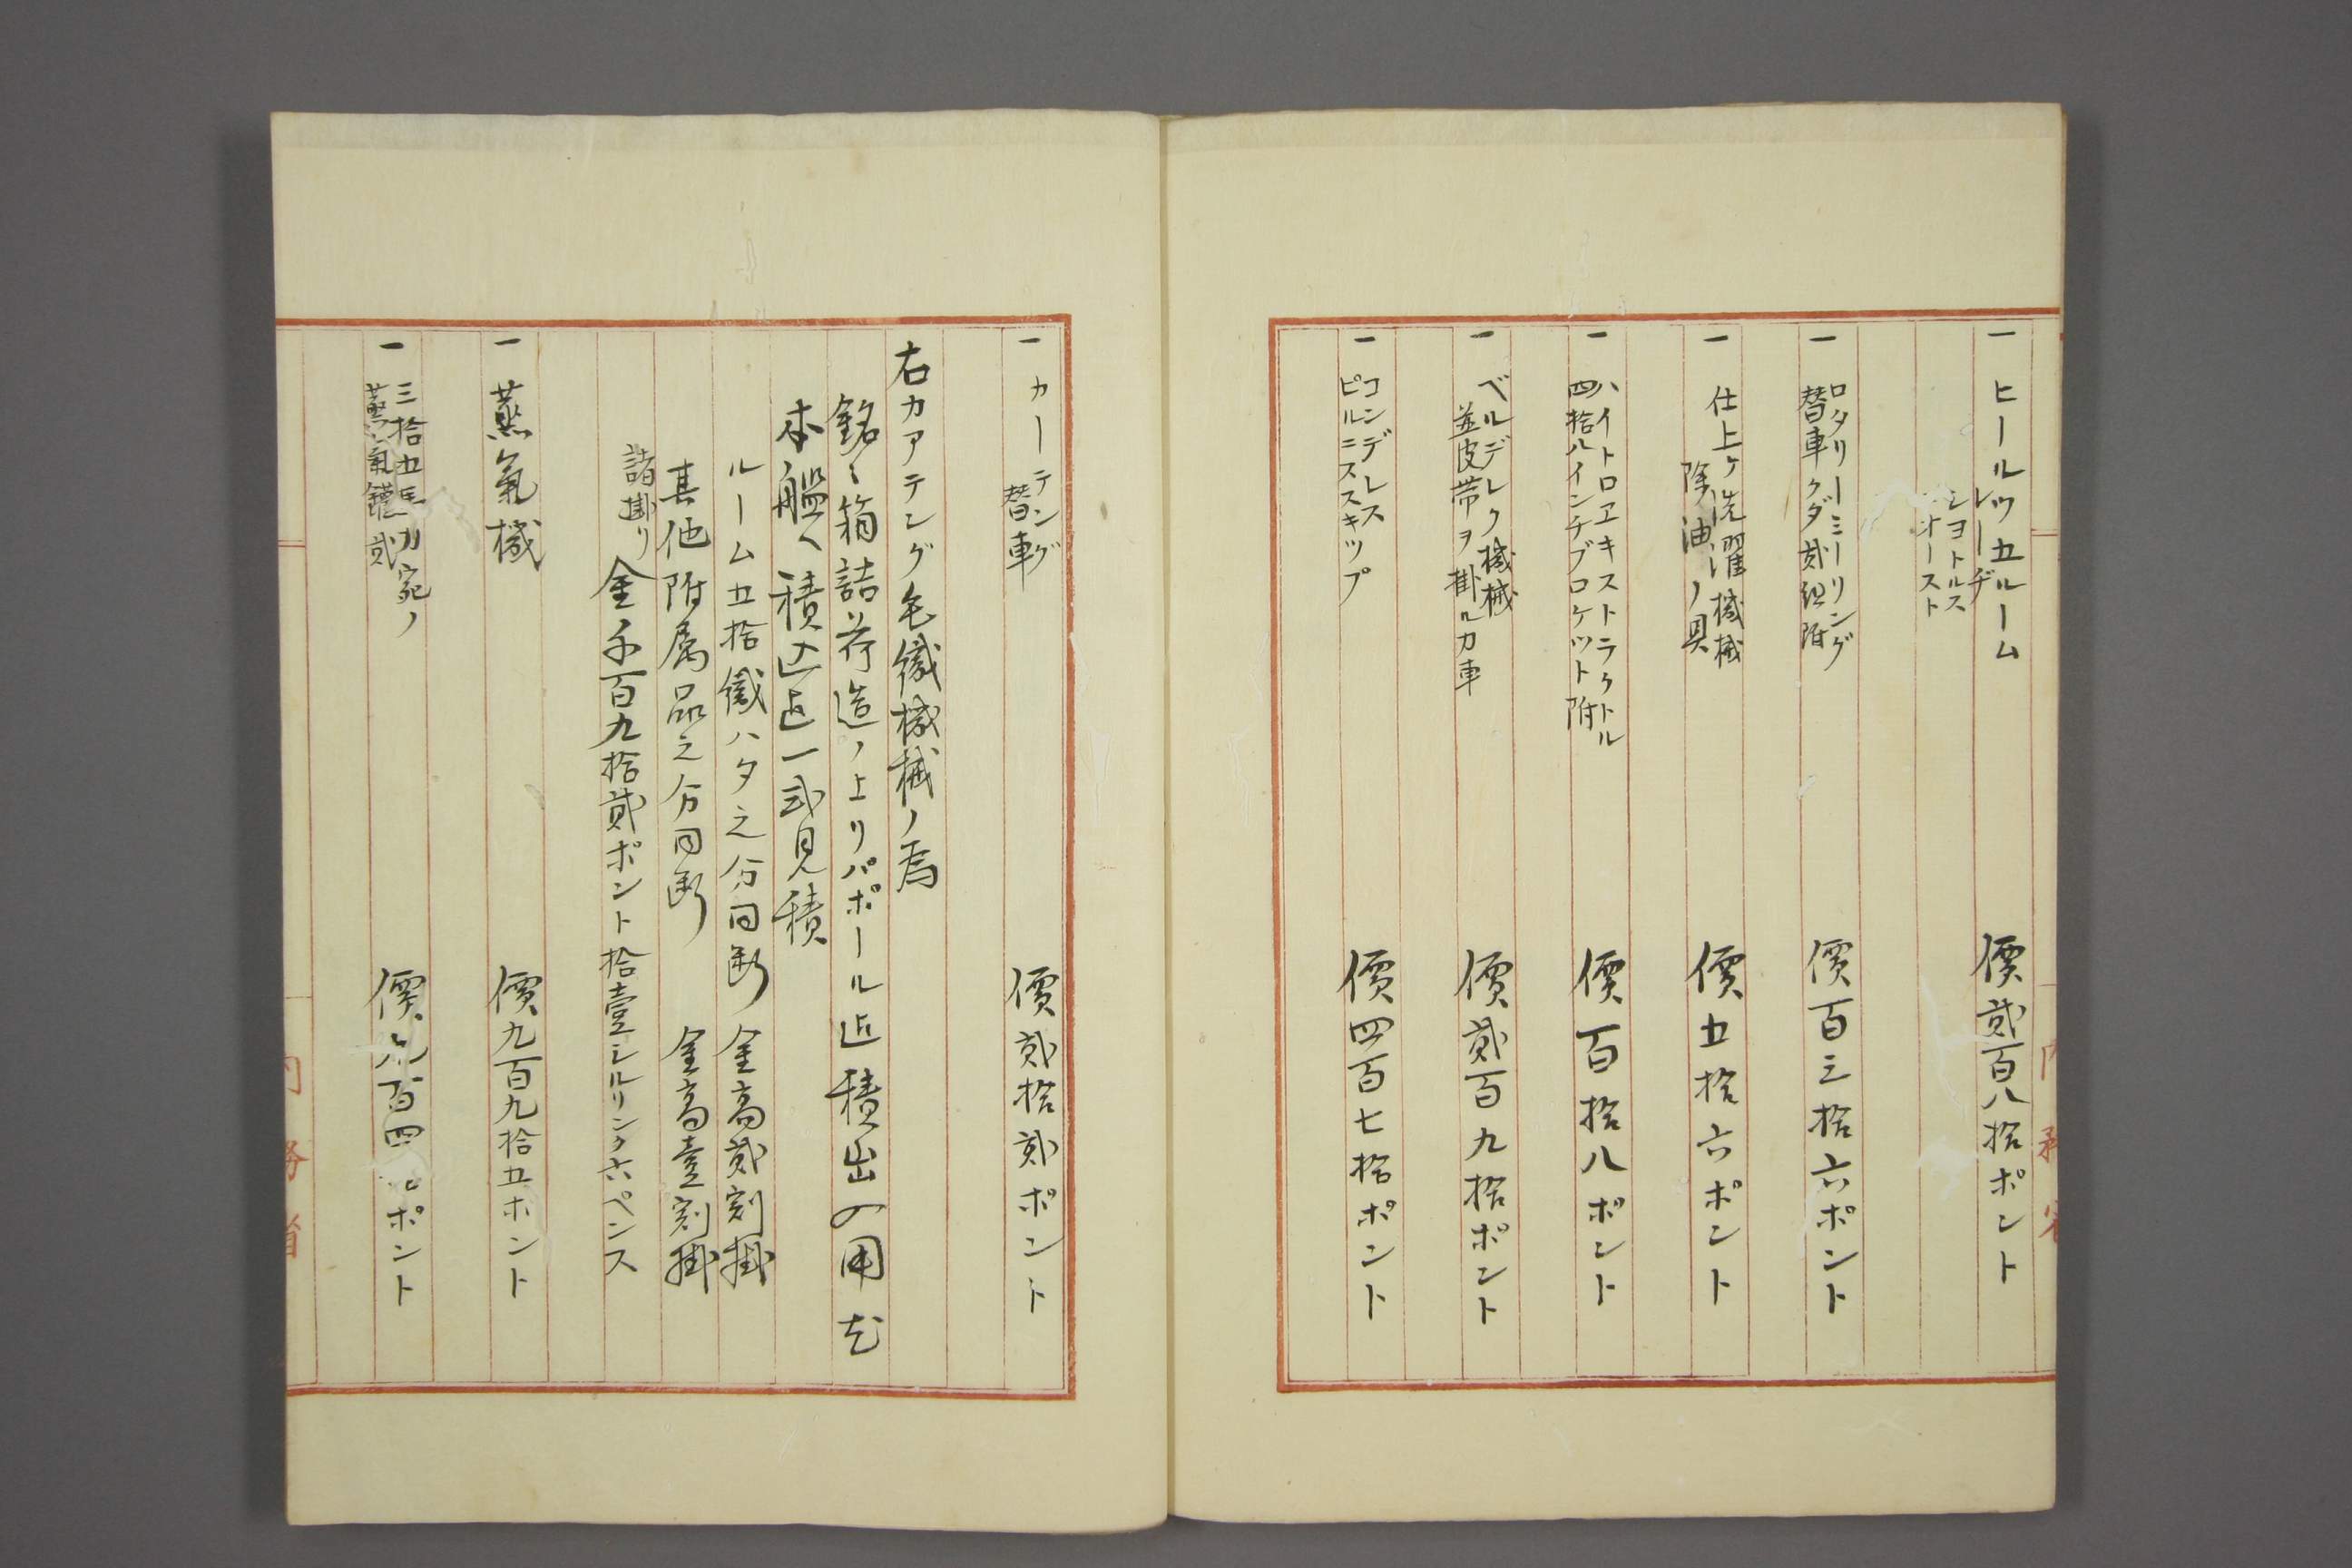 一 ヒールツ五ルーム 價貳百八拾ポント
レーヂ
シヨトルス
オースト
一 ロタリーミーリング
替車クダ貳組附 價百三拾六ポント
一 仕上ケ洗濯機械
除油ノ具 價五拾六ポント
一 ハイトロヱキストラクトル
四拾八インチブロケツト附 價百拾八ポント
一 ベルデレク機械
並皮帯ヲ掛ルカ車 價貳百九拾ポント
一 コンデレス
ピルニススキツプ 價四百七拾ポント
一 カーテング
替車 價貳拾貳ポント
右カアテング毛織機械ノ為
銘々箱詰荷造ノ上リパポール迄積出入用尤
本艦ヘ積込迄一式見積
ルーム五拾織ハタ之分同断 金高貳割掛
其他附属品之分同断 金高壹割掛
諸掛リ 金千百九拾貳ポント拾壹シルリンク六ペンス
一 蒸氣機 價九百九拾五ホント
一 三拾五馬力宛ノ
蒸氣鑵貳 價九百四 ポント
内務省